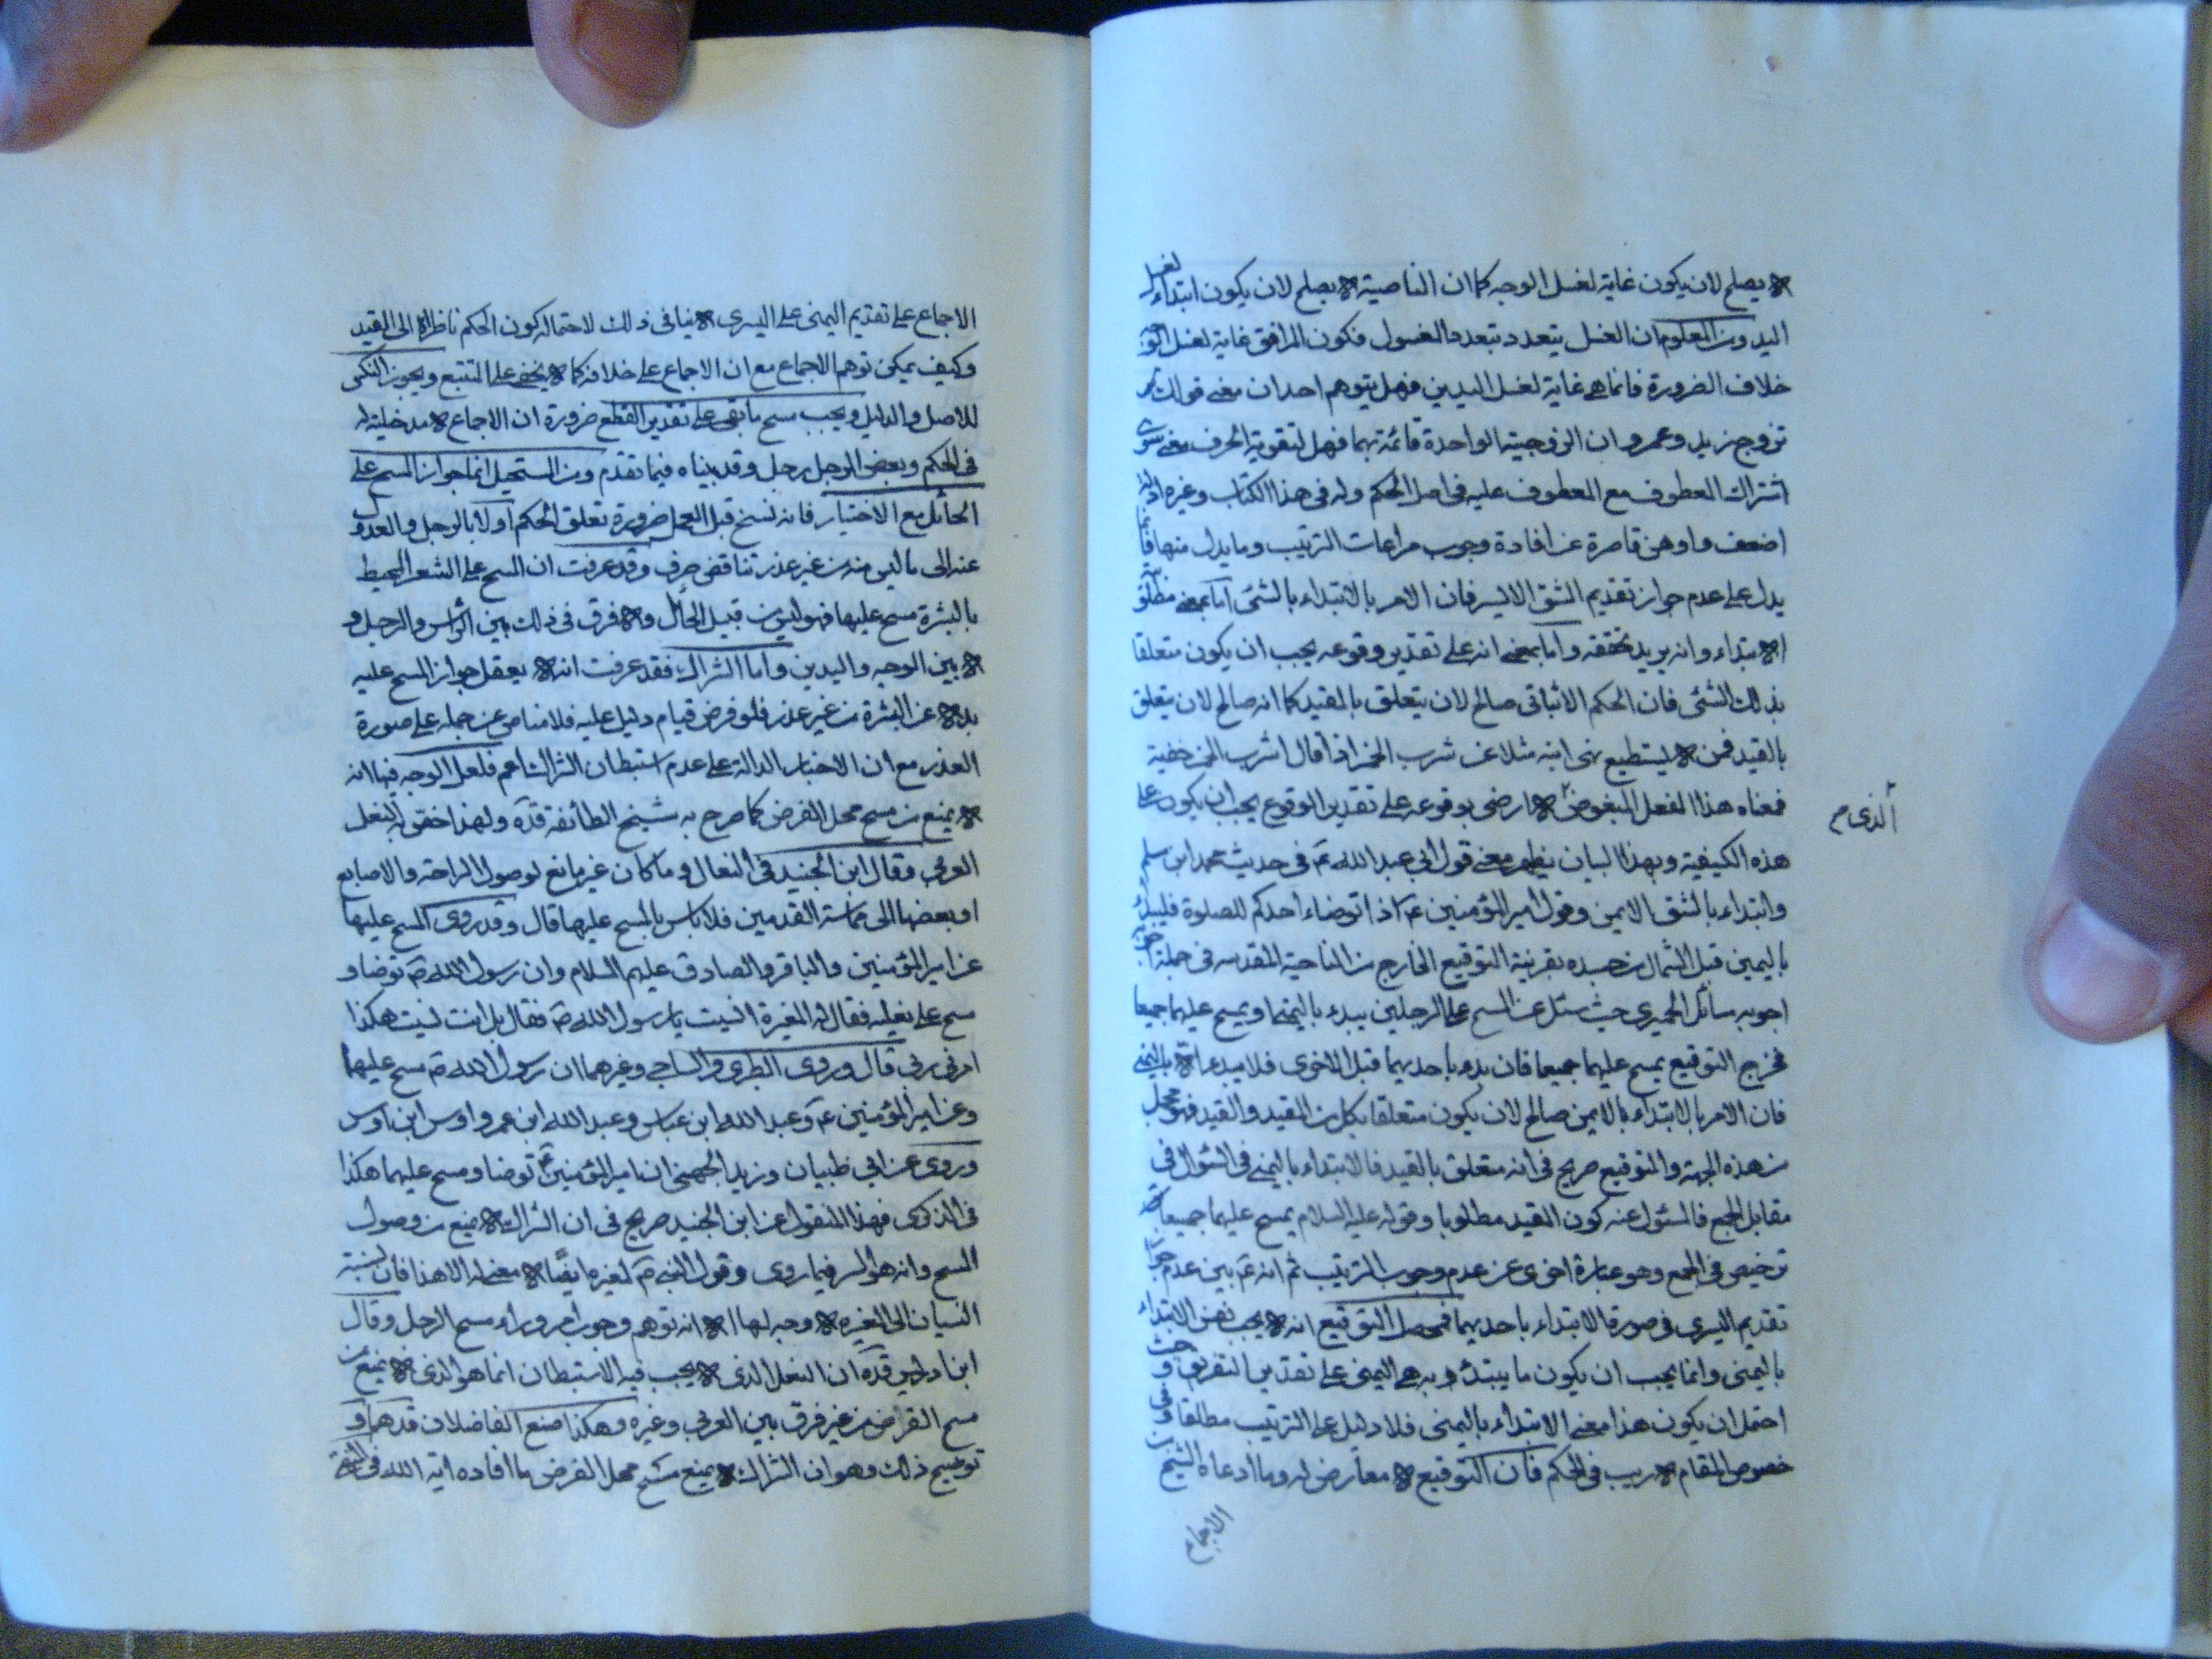 لا يصلح لان يكون غاية لغسل الوجه كما ان الناصية لا يصلح لان يكون ابتداء لغسل
اليد ومن المعلوم ان الغسل يتعدد بتعدد المغسول فكون المرافق غاية لغسل الوجه
خلاف الضرورة فانما هى غاية لغسل اليدين فهل يتوهم احد ان معنى قولك
تزوج زيد وعمرو ان الزوجية الواحدة قائمة بهما فهل لتقوية الحرف معنى سوى
اشتراك المعطوف مع المعطوف عليه فى اصل الحكم وله فى هذا الكتاب وغيره ادلة
اضعف واوهن قاصرة عن افادة وجوب مراعات الترتيب وما يدل منها فانما
يدل على عدم جواز تقديم الشق الايسر فان الامر بالابتداء بالشئ اما بمعنى مطلق
الابتداء وانه يريد تحققه واما بمعنى انه على تقدير وقوعه يجب ان يكون متعلقا
بذلك الشئ فان الحكم الاثباتى صالح لان يتعلق بالمقيد كما انه صالح لان يتعلق
بالقيد فمن لا يستطيع نهى ابنه مثلا عن شرب الخمر اذا قال اشرب الخمر خفية
فمعناه هذا الفعل المبغوض لا ارضى بوقوعه على تقدير الوقوع يجب ان يكون على
الذى م
هذه الكيفية وبهذا البيان يظهر معنى قول ابى عبد الله ع فى حديث محمد ابن مسلم
وابتداء بالشق الايمن وقول امير المؤمنين ع اذا توضاء احدكم للصلوة فليبدء
باليمين قبل الشمال من جسده بقرينة التوقيع الخارج من الناحية المقدسه فى جملة
اجوبه سائل الحميرى حيث سئل عن المسح على الرجلين يبدء باليمنى او يمسح عليهما جميعا
فخرج التوقيع يمسح عليهما جميعا فان بدء باحديهما قبل الاخرى فلا يبدء الا باليمنى
فان الامر بالابتداء بالايمن صالح لان يكون متعلقا بكل من المقيد والقيد فهو مجمل
من هذه الجهة والتوقيع صريح فى انه متعلق بالقيد فالابتداء باليمنى فى السؤال فى
مقابل الجمع فالمسئول عنه كون المقيد مطلوبا وقوله عليه السلام يمسح عليهما جميعا
ترخيص فى الجمع وهو عبارة اخرى عن عدم وجوب الترتيب ثم انه ع بين عدم جواز
تقديم اليسرى فى صورة الابتداء باحديهما فمحصل التوقيع انه لا يجب نفس الابتداء
باليمنى وانما يجب ان يكون ما يبتدء به هى اليمنى على تقدير التفريق وحيث
احتمل ان يكون هذا معنى الابتداء باليمنى فلا دليل على الترتيب مطلقا وفى
خصوص المقام لا ريب فى الحكم فان التوقيع لا معارض له وما ادعاه الشيخ من
الاجماع
الاجماع على تقديم اليمنى على اليسرى لا ينافى ذلك لاحتمال كون الحكم ناظرا الى القيد
وكيف يمكن توهم الاجماع مع ان الاجماع على خلافه كما لا يخفى على المتتبع ويجوز النكس
للاصل والدليل ويجب مسح ما بقى على تقدير القطع ضرورة ان الاجماع لا مدخلية له
فى الحكم وبعض الرجل رجل وقد بيناه فيما تقدم ومن المستحيل انما جواز المسح على
الحائل مع الاختيار فانه نسخ قبل العمل ضرورة تعلق الحكم اولا بالرجل والعدول
عنه الى ما ليس منه من غير عذر تناقض صرف وقد عرفت ان المسح على الشعر المحيط
بالبشرة مسح عليها فهو ليس من قبيل الحائل ولا فرق فى ذلك بين الراس والرجل و
لا بين الوجه واليدين واما الشراك فقد عرفت انه لا يعقل جواز المسح عليه
بدلا عن البشرة من غير عذر فلو فرض قيام دليل عليه فلا مناص عن حمله على صورة
العذر مع ان الاخبار الدالة على عدم استبطان الشراك اعم فلعل الوجه فيها انه
لا يمنع من مسح محل الفرض كما صرح به شيخ الطائفة قده ولهذا خص بالنعل
العربى وقال ابن الجنيد فى النعال وما كان غير مانع لوصول الراحة والاصابع
او بعضها الى مماسة القدمين فلا باس بالمسح عليها قال وقد روى المسح عليها
عن امير المؤمنين والباقر والصادق عليهم السلام وان رسول الله ص توضا و
مسح على نعليه فقال له المغيرة انسيت يا رسول الله ص فقال بل انت نسيت هكذا
امرنى ربى قال وروى الطبرى والساجى وغيرهما ان رسول الله ص مسح عليهما
وعن امير المؤمنين ع وعبد الله ابن عباس وعبد الله ابن عمرو اوس ابن اوس
وروى عن ابى ظبيان وزيد الجهنى ان امير المؤمنين ع توضا ومسح عليهما هكذا
فى الذكرى فهذا المنقول عن ابن الجنيد صريح فى ان الشراك لا يمنع من وصول
المسح وانه هو السر فيما روى وقول النبى ص لمغيره ايضا لا معنى له الا هذا فان نسبة
النسيان الى المغيره لا وجه لها الا انه توهم وجوب امر وراء مسح الرجل وقال
ابن ادريس قده ان النعل الذى لا يجب فيه الاستبطان انما هو الذى لا يمنع من
مسح الفرض من غير فرق بين العربى وغيره وهكذا صنع الفاضلان قدهما و
توضيح ذلك وهو ان الشراك لا يمنع مسح محل الفرض ما افاده اية الله فى